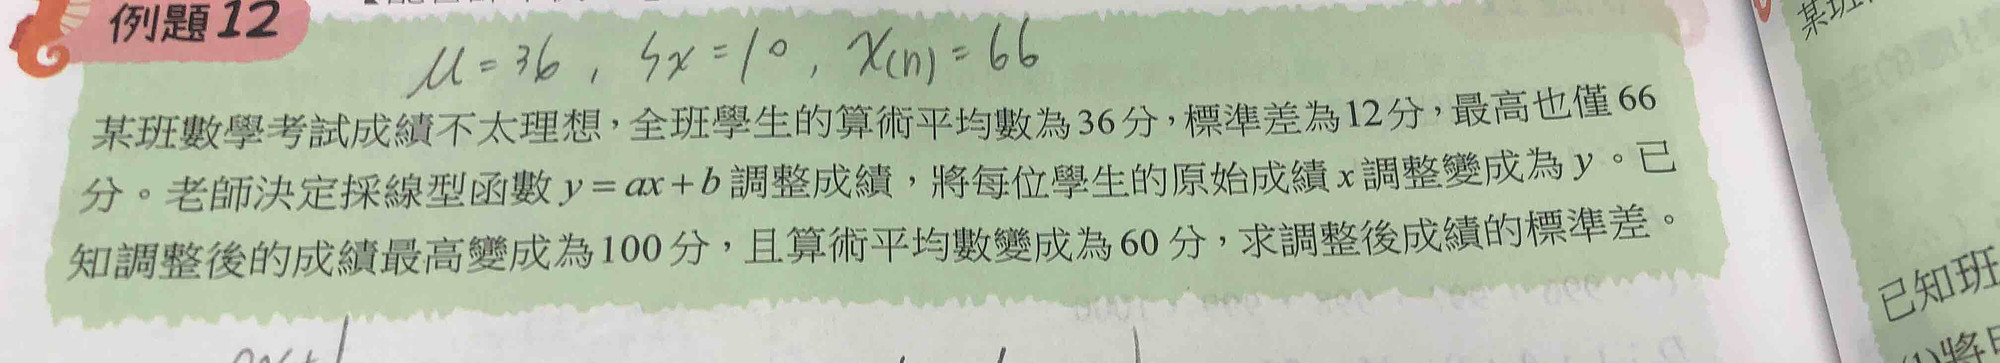 例題12
μ=36, Sx=10, x(n)=66
某班數學考試成績不太理想，全班學生的算術平均數為36分，標準差為12分，最高也僅66
分。老師決定採線型函數y=ax+b調整成績，將每位學生的原始成績x調整變成為y。已
知調整後的成績最高變成為100分，且算術平均數變成為60分，求調整後成績的標準差。
某班
已知班